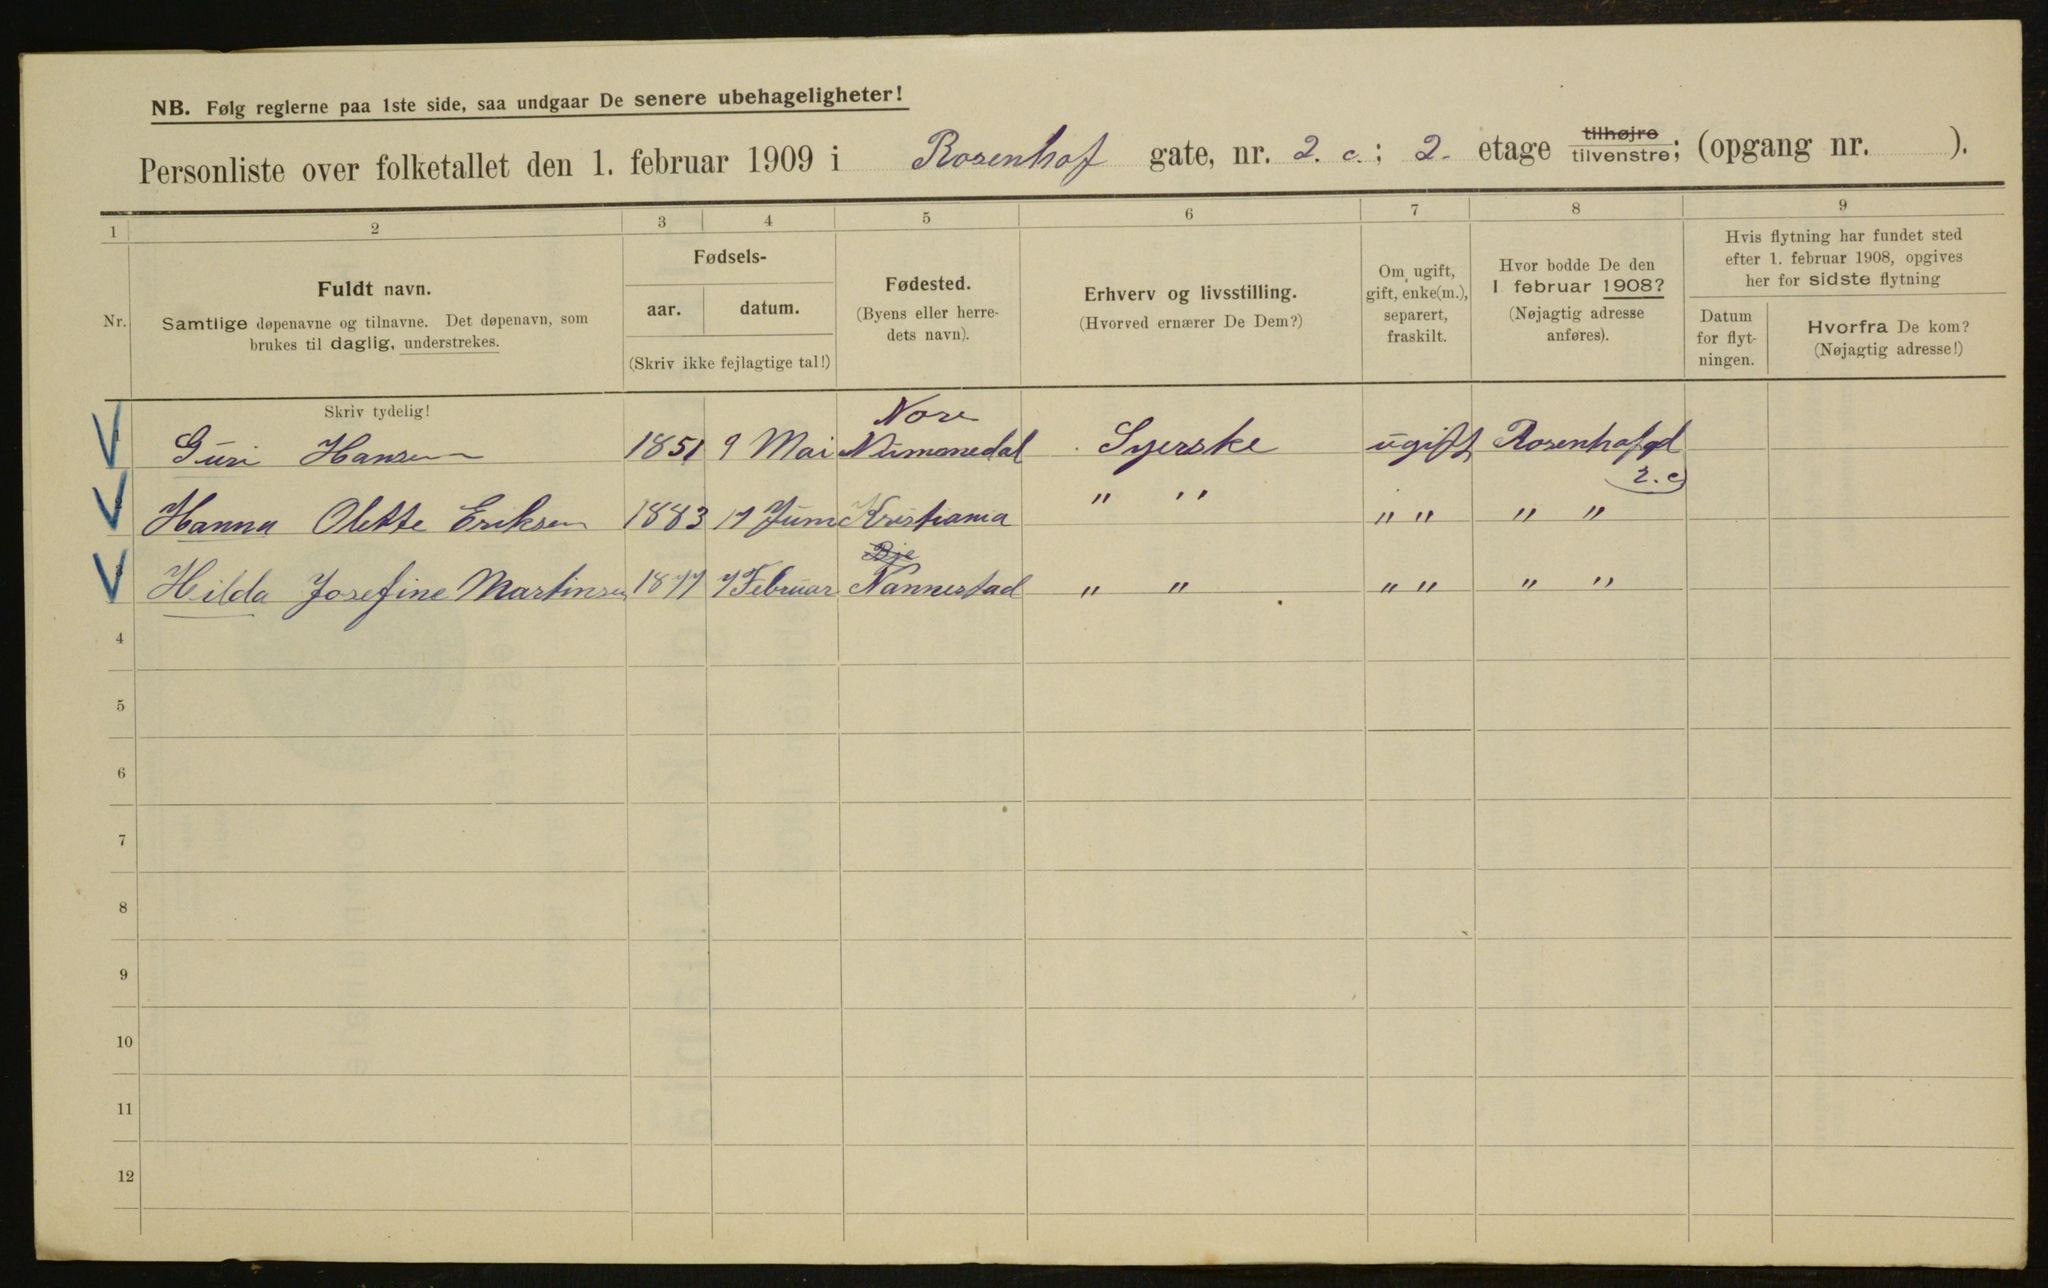 NB. Følg reglerne paa 1ste side, saa undgaar De senere ubehageligheter!
Personliste over folketallet den 1. februar 1909 i Rosenhof gate, nr. 2. c.; 2. etage tilhøjre tilvenstre; (opgang nr. ).
1 2 3 4 5 6 7 8 9
Nr.
Fuldt navn.
Samtlige døpenavne og tilnavne. Det døpenavn, som
brukes til daglig, understrekes.
Fødsels-
aar. datum.
(Skriv ikke fejlagtige tal!)
Fødested.
(Byens eller herre-
dets navn).
Erhverv og livsstilling.
(Hvorved ernærer De Dem?)
Om ugift,
gift, enke(m.),
separert,
fraskilt.
Hvor bodde De den
1 februar 1908?
(Nøjagtig adresse
anføres).
Hvis flytning har fundet sted
efter 1. februar 1908, opgives
her for sidste flytning
Datum
for flyt-
ningen.
Hvorfra De kom?
(Nøjagtig adresse!)
Skriv tydelig!
Nore
Guri Hansen 1851 9 Mai Numenedal Syerske ugift Rosenhofgd
2. c
Hanna Olette Eriksen 1883 17 Juni Kristiania " " " " " "
Bje
Hilda Josefine Martinsen 1877 7 Februar Nannestad " " " " " "
4
5
6
7
8
9
10
11
12